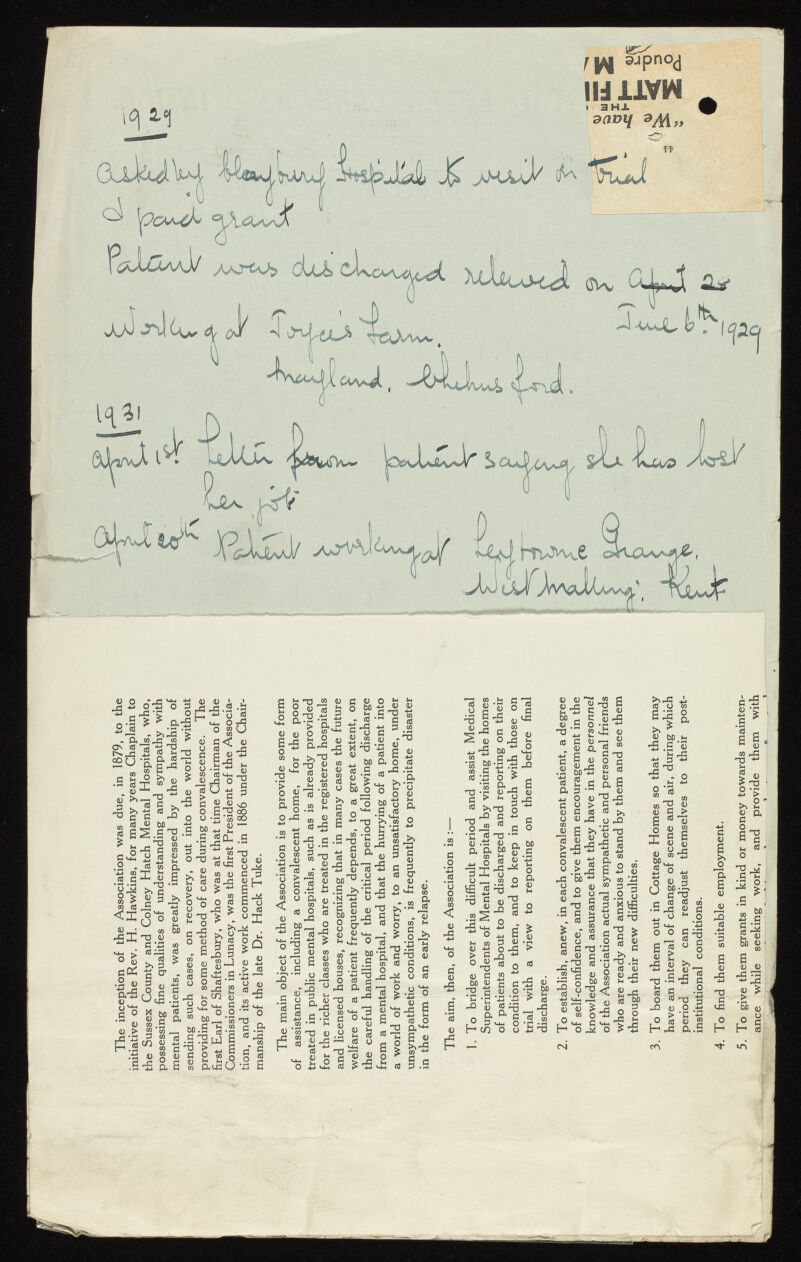 1929
asked by Claybury Hospital to visit on trial
I paid grant
Patient was discharged relieved on April 28
June 6th. 1929
Working at Joyce's Farm,
Mayland, Chelmsford.
1931
April 1st. Letter from patient saying she has lost
her job
April 20th Patient working at Leybourne Grange,
West Malling; Kent
"We have
THE
MATT FI
Poudre MA
44
The inception of the Association was due, in 1879, to the
initiative of the Rev. H. Hawkins, for many years Chaplain to
the Sussex County and Colney Hatch Mental Hospitals, who,
possessing fine qualities of understanding and sympathy with
mental patients, was greatly impressed by the hardship of
sending such cases, on recovery, out into the world without
providing for some method of care during convalescence. The
first Earl of Shaftesbury, who was at that time Chairman of the
Commissioners in Lunacy, was the first President of the Associa-
tion, and its active work commenced in 1886 under the Chair-
manship of the late Dr. Hack Tuke.
The main object of the Association is to provide some form
of assistance, including a convalescent home, for the poor
treated in public mental hospitals, such as is already provided
for the richer classes who are treated in the registered hospitals
and licensed houses, recognizing that in many cases the future
welfare of a patient frequently depends, to a great extent, on
the careful handling of the critical period following discharge
from a mental hospital, and that the hurrying of a patient into
a world of work and worry, to an unsatisfactory home, under
unsympathetic conditions, is frequently to precipitate disaster
in the form of an early relapse.
The aim, then, of the Association is:—
1. To bridge over this difficult period and assist Medical
Superintendents of Mental Hospitals by visiting the homes
of patients about to be discharged and reporting on their
condition to them, and to keep in touch with those on
trial with a view to reporting on them before final
discharge.
2. To establish, anew, in each convalescent patient, a degree
of self-confidence, and to give them encouragement in the
knowledge and assurance that they have in the personnel
of the Association actual sympathetic and personal friends
who are ready and anxious to stand by them and see them
through their new difficulties.
3. To board them out in Cottage Homes so that they may
have an interval of change of scene and air, during which
period they can readjust themselves to their post-
institutional conditions.
4. To find them suitable employment.
5. To give them grants in kind or money towards mainten-
ance while seeking work, and provide them with